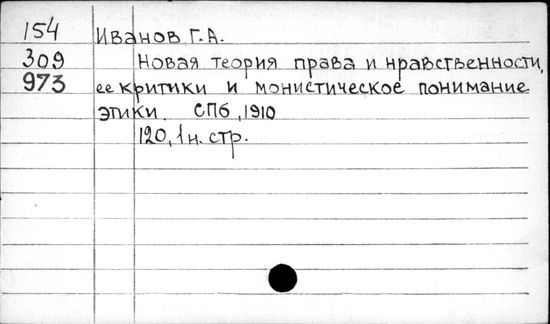 154 Иванов Г.А.
309 Новая теория права и нравственности,
973 ее критики и монистическое понимание
этики. СПб, 1910
120, 1 н. стр.